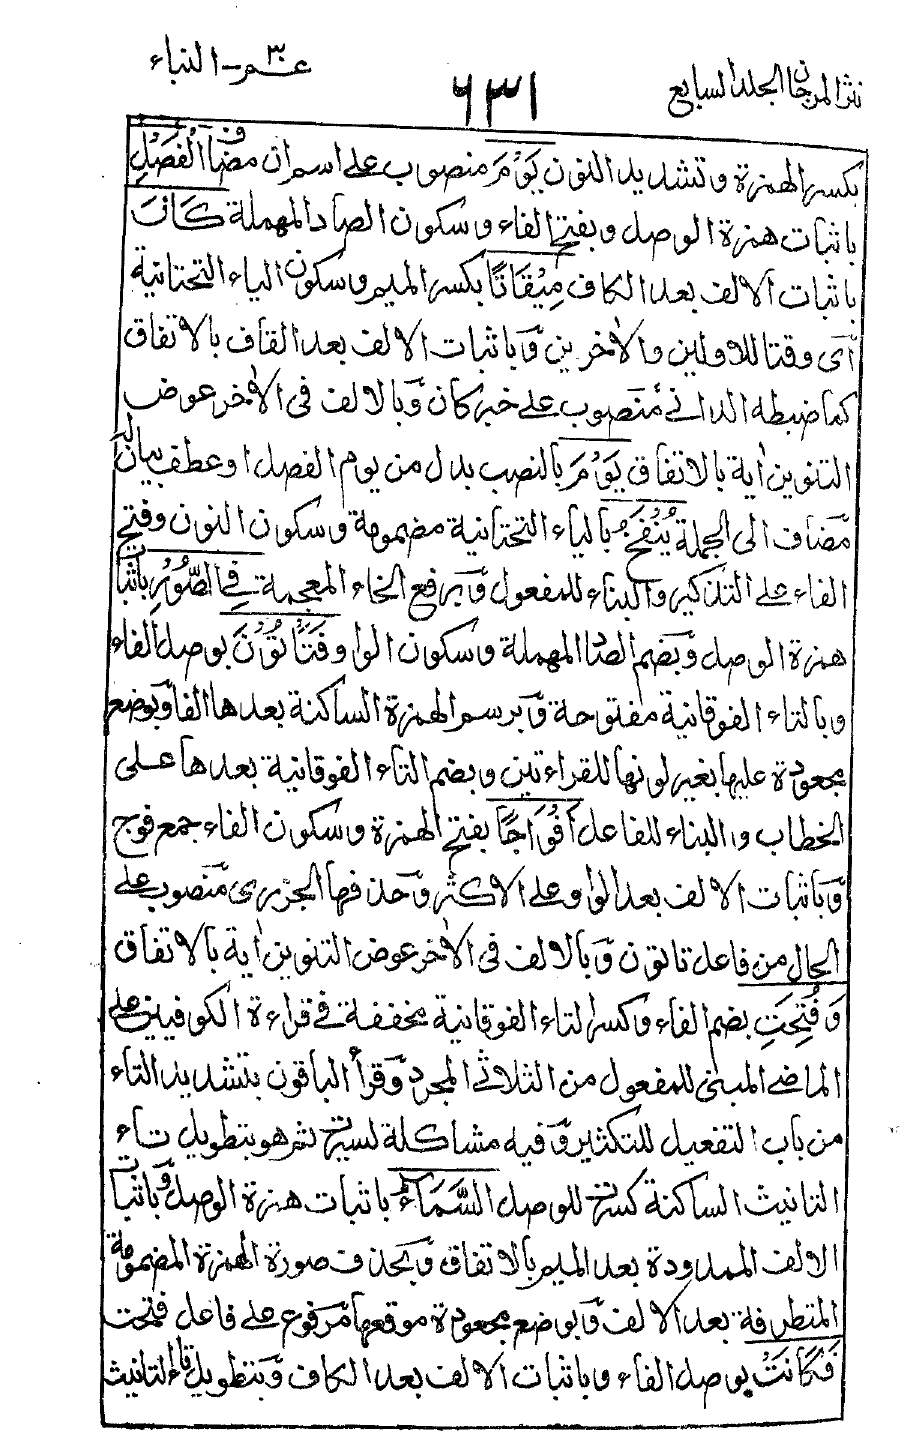 نثر المرجان الجلد السابع
٦٣١
عم ٣٠ - النباء
بكسر الهمزة وتشديد النون يَوْمَ منصوب على اسم ان مضاف الْفَصْلِ
باثبات همزة الوصل وبفتح الفاء وسكون الصاد المهملة كَانَ
باثبات الالف بعد الكاف مِيْقَاتًا بكسر الميم وسكون الياء التحتانية
اى وقتا للاولين والاٰخرين وباثبات الالف بعد القاف بالاتفاق
كما ضبطه الدانى منصوب على خبر كان وبالالف فى الاٰخر عوض
التنوين اٰية بالاتفاق يَوْمَ بالنصب بدل من يوم الفصل او عطف بيان له
مضاف الى الجملة يُنْفَخُ بالياء التحتانية مضمومة وسكون النون وفتح
الفاء على التذكير والبناء للمفعول وبرفع الخاء المعجمة فِى الصُّوْرِ باثبات
همزة الوصل وبضم الصاد المهملة وسكون الواو فَتَأْتُوْنَ بوصل الفاء
وبالتاء الفوقانية مفتوحة وبرسم الهمزة الساكنة بعدها الفا وبوضع
مجعودة عليها بغير لونها للقراءتين وبضم التاء الفوقانية بعدها على
الخطاب والبناء للفاعل اَفْوَاجًا بفتح الهمزة وسكون الفاء جمع فوج
وباثبات الالف بعد الواو على الاكثر وحذفها الجزرى منصوب على
الحال من فاعل تاتون وبالالف فى الاٰخر عوض التنوين اٰية بالاتفاق
وَفُتِحَتِ بضم الفاء وكسر التاء الفوقانية مخففة فى قراءة الكوفيين على
الماضى المبنى للمفعول من الثلاثى المجرد وقرأ الباقون بتشديد التاء
من باب التفعيل للتكثير وفيه مشاكلة لسيرت ثم هو بتطويل تاء
التانيث الساكنة كسرت للوصل السَّمَاءُ باثبات همزة الوصل وباثبات
الالف الممدودة بعد الميم بالاتفاق وبحذف صورة الهمزة المضمومة
المتطرفة بعد الالف وبوضع مجعودة موقعها مرفوع على فاعل فتحت
فَكَانَتْ بوصل الفاء وباثبات الالف بعد الكاف وبتطويل تاء التانيث